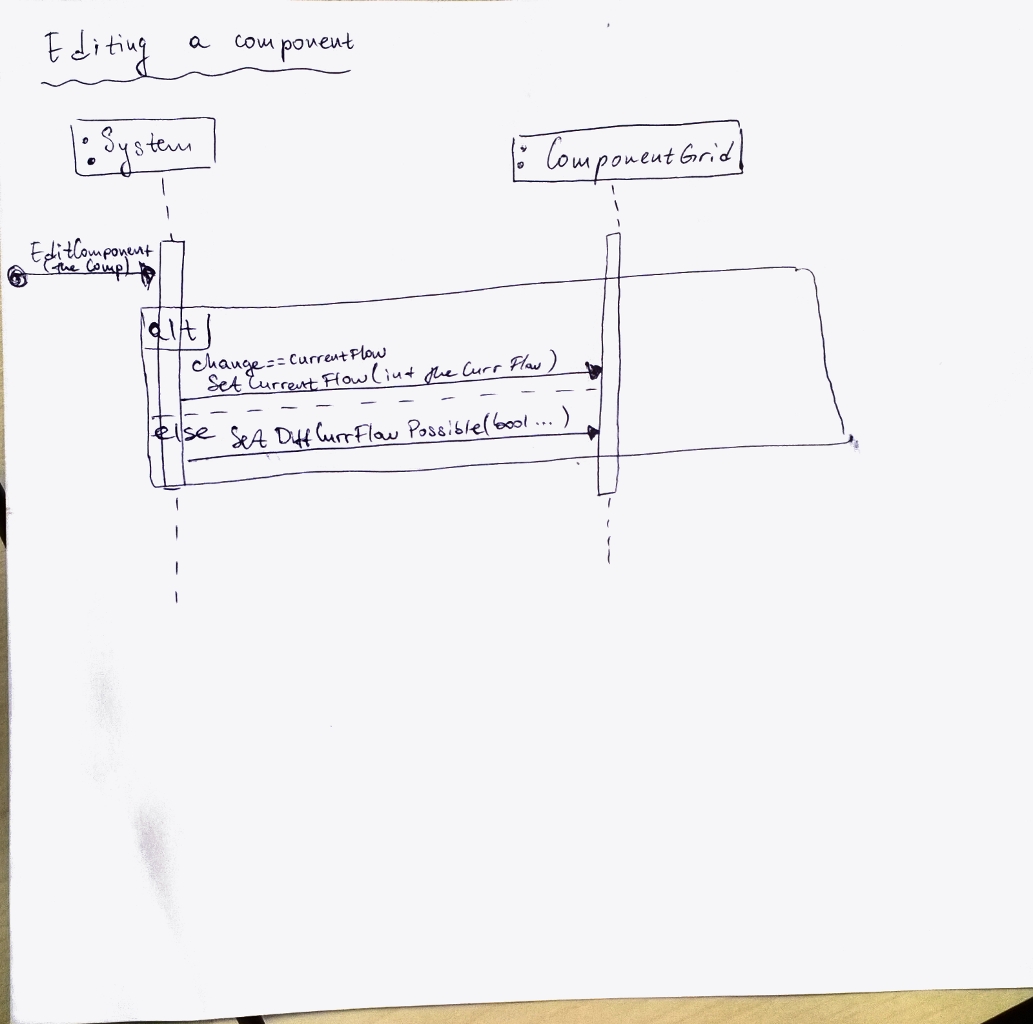 Editing a component
: System
: ComponentGrid
EditComponent
(the Comp)
alt
change==CurrentFlow
Set Current Flow(int the Curr Flow)
else
Set Diff Curr Flow Possible(bool ...)